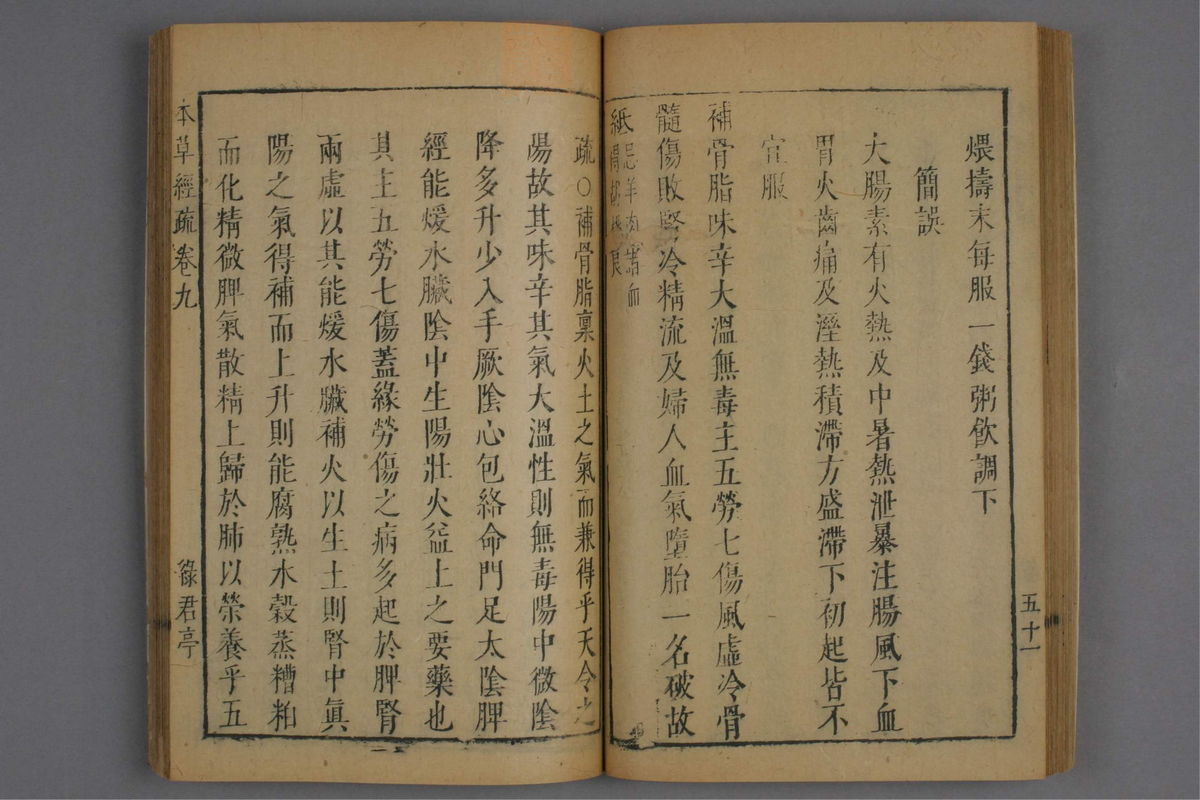 煨擣末每服一錢粥飲調下
簡誤
大腸素有火熱及中暑熱泄暴注腸風下血
胃火齒痛及溼熱積滯方盛滯下初起皆不
宜服
補骨脂味辛大溫無毒主五勞七傷風虛冷骨
髓傷敗腎冷精流及婦人血氣墮胎一名破故
紙
忌羊肉諸血
五十一
疏○補骨脂稟火土之氣而兼得乎天令之
陽故其味辛其氣大溫性則無毒陽中微陰
降多升少入手厥陰心包絡命門足太陰脾
經能煖水臟陰中生陽壯火益土之要藥也
其主五勞七傷蓋緣勞傷之病多起於脾腎
兩虛以其能煖水臟補火以生土則腎中眞
陽之氣得補而上升則能腐熟水穀蒸糟粕
而化精微脾氣散精上歸於肺以榮養乎五
本草經疏 卷九
綠君亭